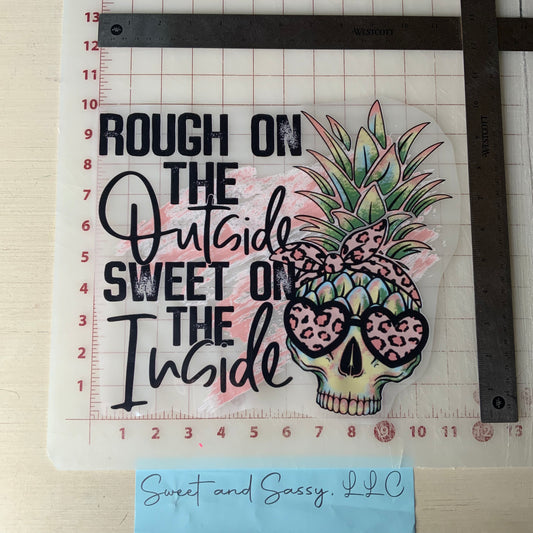 WESTCOTT
WESTCOTT
13
12
11
10
9
8
7
6
5
4
3
2
1
ROUGH ON
THE
Outside
SWEET ON
THE
Inside
1 2 3 4 5 6 7 8 9 10 11 12 13
Sweet and Sassy, LLC